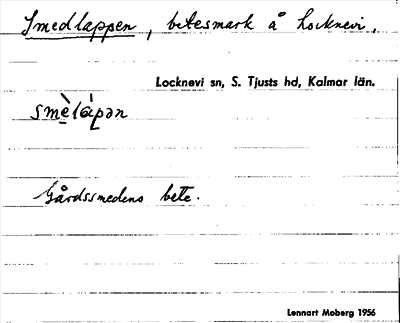 Smedlappen, betesmark å Locknevi.
Locknevi sn, S. Tjusts hd, Kalmar län.
Gårdssmedens bete.
Lennart Moberg 1956